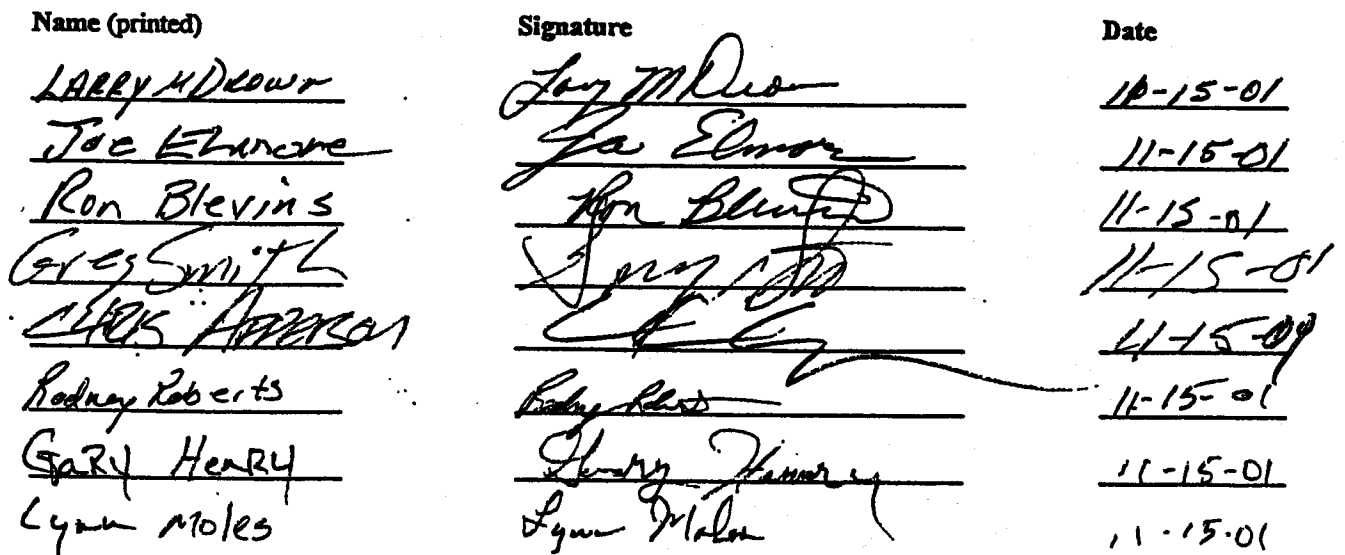 Name (printed) Signature Date
LARRY M Drown Larry M Drown 11-15-01
Joe Elmore Joe Elmore 11-15-01
Ron Blevins Ron Blevins 11-15-01
Greg Smith Greg 11-15-01
CHRIS APPERSON 11-15-01
Rodney Roberts Rodney Roberts 11-15-01
GaRy HenRy 11-15-01
Lynn Moles Lynn Moles 11-15-01